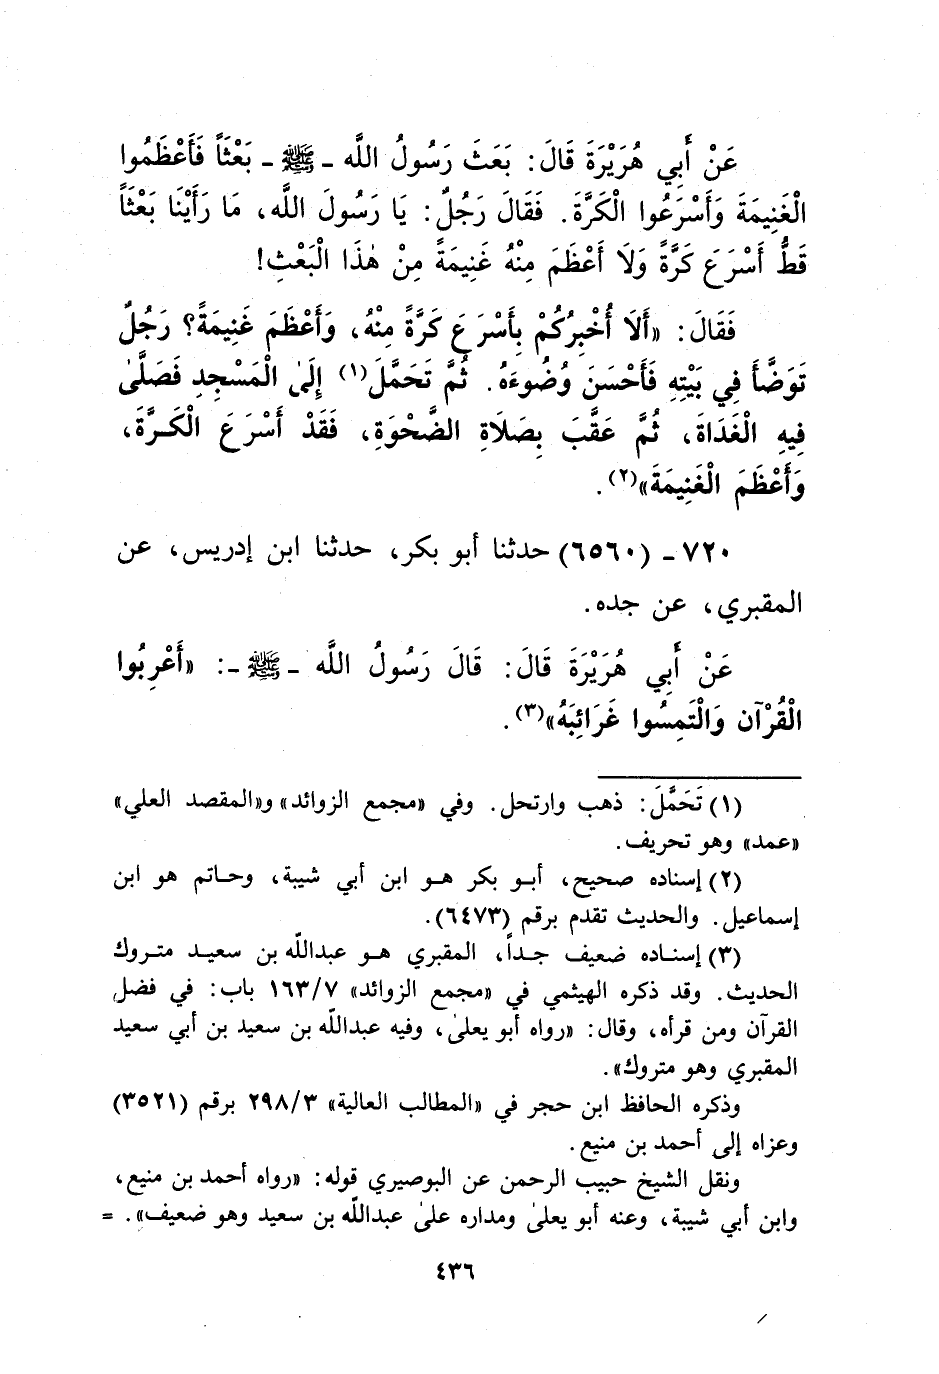 عَنْ أَبِي هُرَيْرَةَ قَالَ: بَعَثَ رَسُولُ اللَّه ـ ﷺ ـ بَعْثَاً فَأَعْظَمُوا
الْغَنِيمَةَ وَأَسْرَعُوا الْكَرَّةَ. فَقَالَ رَجُلٌ: يَا رَسُولَ اللَّه، مَا رَأَيْنَا بَعْثَاً
قَطُّ أَسْرَعَ كَرَّةً وَلَا أَعْظَمَ مِنْهُ غَنِيمَةً مِنْ هٰذَا الْبَعْثِ!
فَقَالَ: «أَلَا أُخْبِرُكُمْ بِأَسْرَعَ كَرَّةً مِنْهُ، وَأَعْظَمَ غَنِيمَةً؟ رَجُلٌ
تَوَضَّأَ فِي بَيْتِهِ فَأَحْسَنَ وُضُوءَهُ. ثُمَّ تَحَمَّلَ(١) إِلَىٰ الْمَسْجِدِ فَصَلَّىٰ
فِيهِ الْغَدَاةَ، ثُمَّ عَقَّبَ بِصَلَاةِ الضَّحْوَةِ، فَقَدْ أَسْرَعَ الْكَرَّةَ،
وَأَعْظَمَ الْغَنِيمَةَ»(٢).
٧٢٠ ـ (٦٥٦٠) حدثنا أبو بكر، حدثنا ابن إدريس، عن
المقبري، عن جده.
عَنْ أَبِي هُرَيْرَةَ قَالَ: قَالَ رَسُولُ اللَّه ـ ﷺ ـ: «أَعْرِبُوا
الْقُرْآن وَالْتَمِسُوا غَرَائِبَهُ»(٣).
(١) تَحَمَّلَ: ذهب وارتحل. وفي «مجمع الزوائد» و«المقصد العلي»
«عمد» وهو تحريف.
(٢) إسناده صحيح، أبو بكر هو ابن أبي شيبة، وحاتم هو ابن
إسماعيل. والحديث تقدم برقم (٦٤٧٣).
(٣) إسناده ضعيف جداً، المقبري هو عبدالله بن سعيد متروك
الحديث. وقد ذكره الهيثمي في «مجمع الزوائد» ١٦٣/٧ باب: في فضل
القرآن ومن قرأه، وقال: «رواه أبو يعلىٰ، وفيه عبدالله بن سعيد بن أبي سعيد
المقبري وهو متروك».
وذكره الحافظ ابن حجر في «المطالب العالية» ٢٩٨/٣ برقم (٣٥٢١)
وعزاه إلى أحمد بن منيع.
ونقل الشيخ حبيب الرحمن عن البوصيري قوله: «رواه أحمد بن منيع،
وابن أبي شيبة، وعنه أبو يعلىٰ ومداره علىٰ عبدالله بن سعيد وهو ضعيف». =
٤٣٦